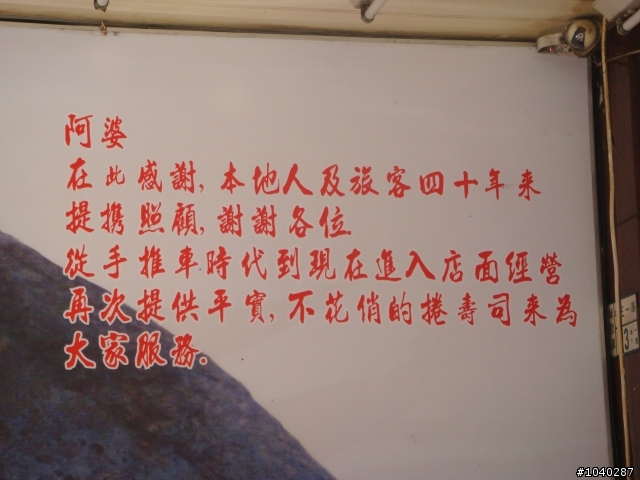 阿婆
在此感謝,本地人及旅客四十年来
提携照顧,謝謝各位.
從手推車時代到現在進入店面經營
再次提供平實,不花俏的捲壽司来為
大家服務.
#1040287